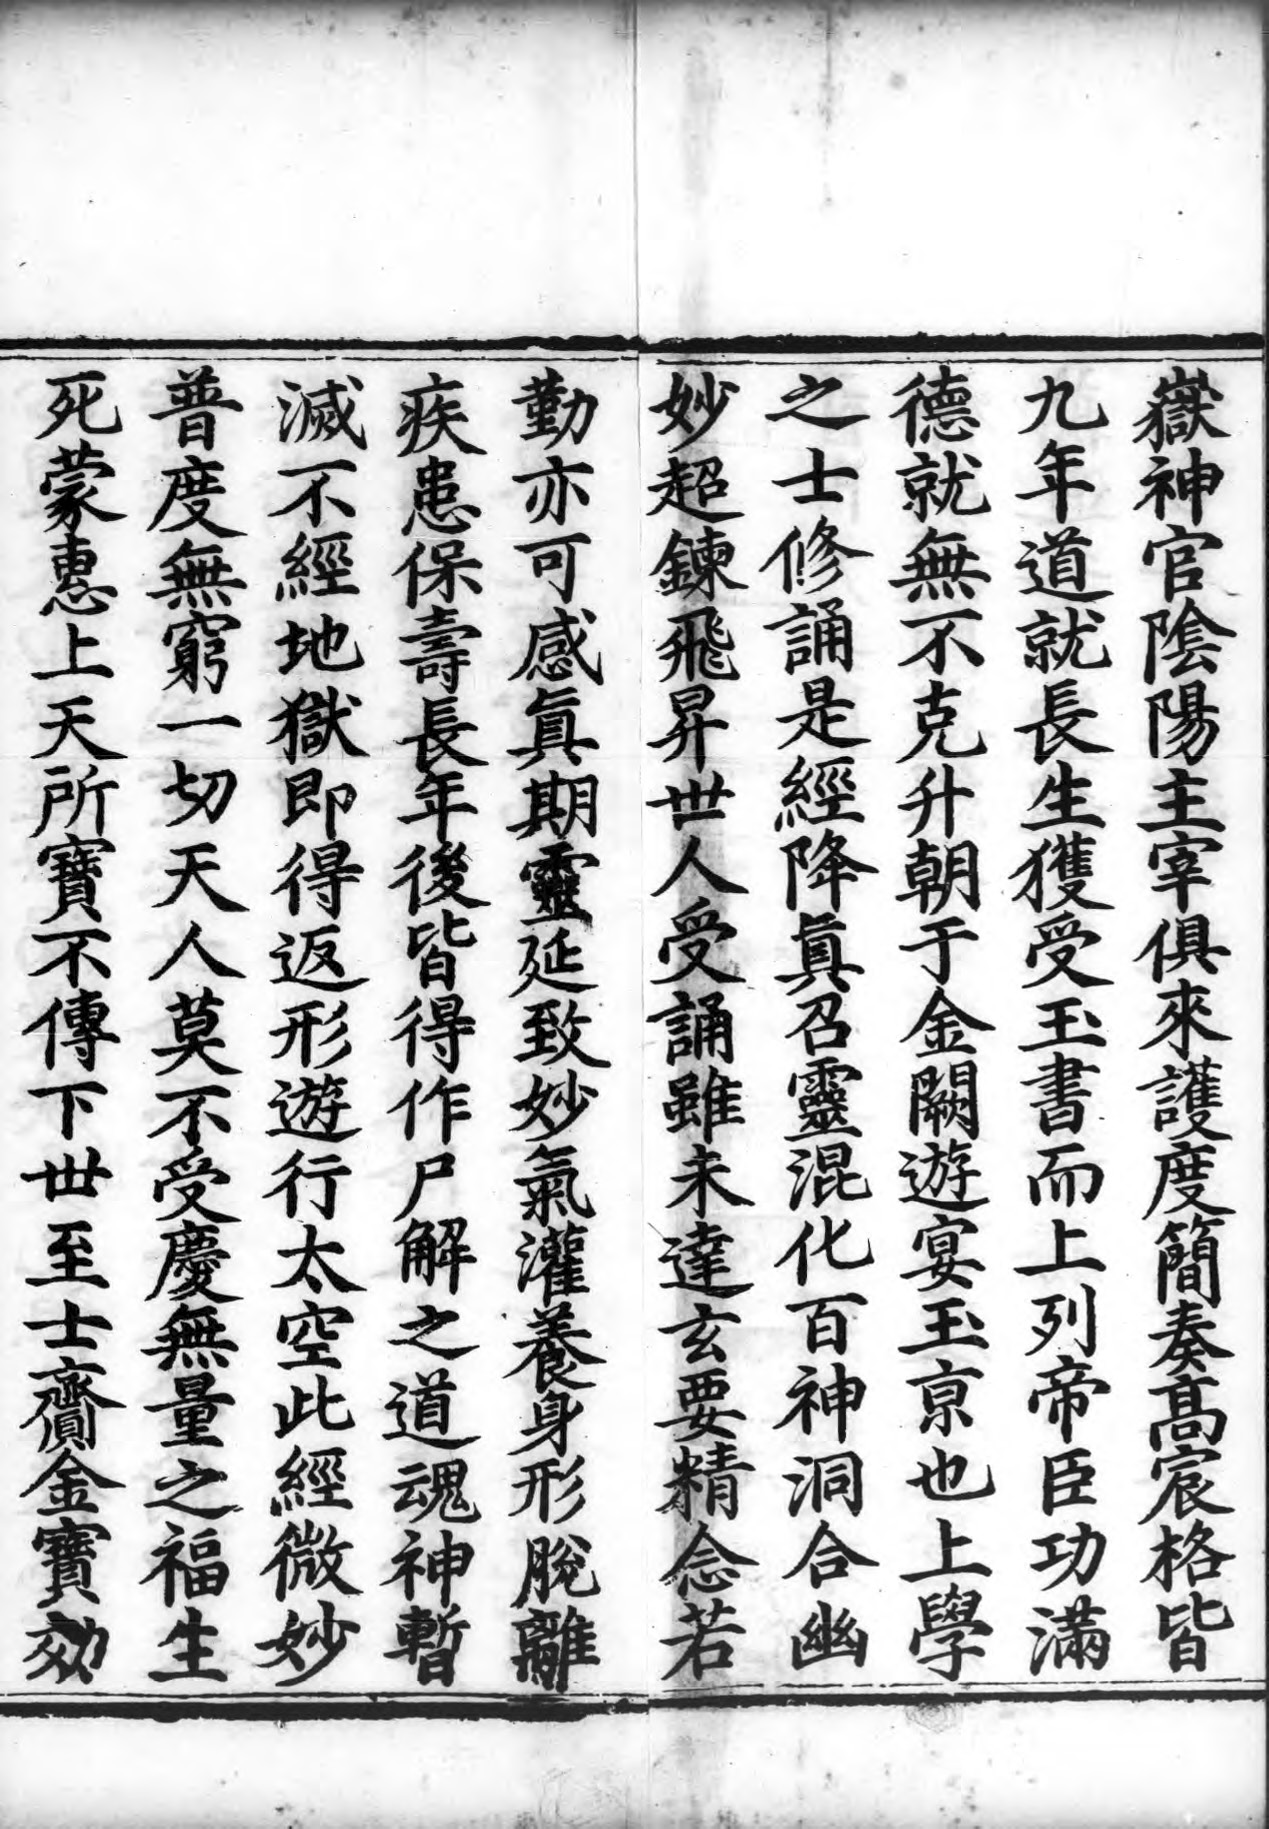 嶽神官陰陽主宰俱來護度簡奏高宸格皆
九年道就長生獲受玉書而上列帝臣功滿
德就無不克升朝于金闕遊宴玉京也上學
之士修誦是經降眞召靈混化百神洞合幽
妙超鍊飛昇世人受誦雖未達玄要精念若
勤亦可感眞期靈延致妙氣灌養身形脫離
疾患保壽長年後皆得作尸解之道魂神暫
滅不經地獄即得返形遊行太空此經微妙
普度無窮一切天人莫不受慶無量之福生
死蒙惠上天所寶不傳下世至士齎金寶效